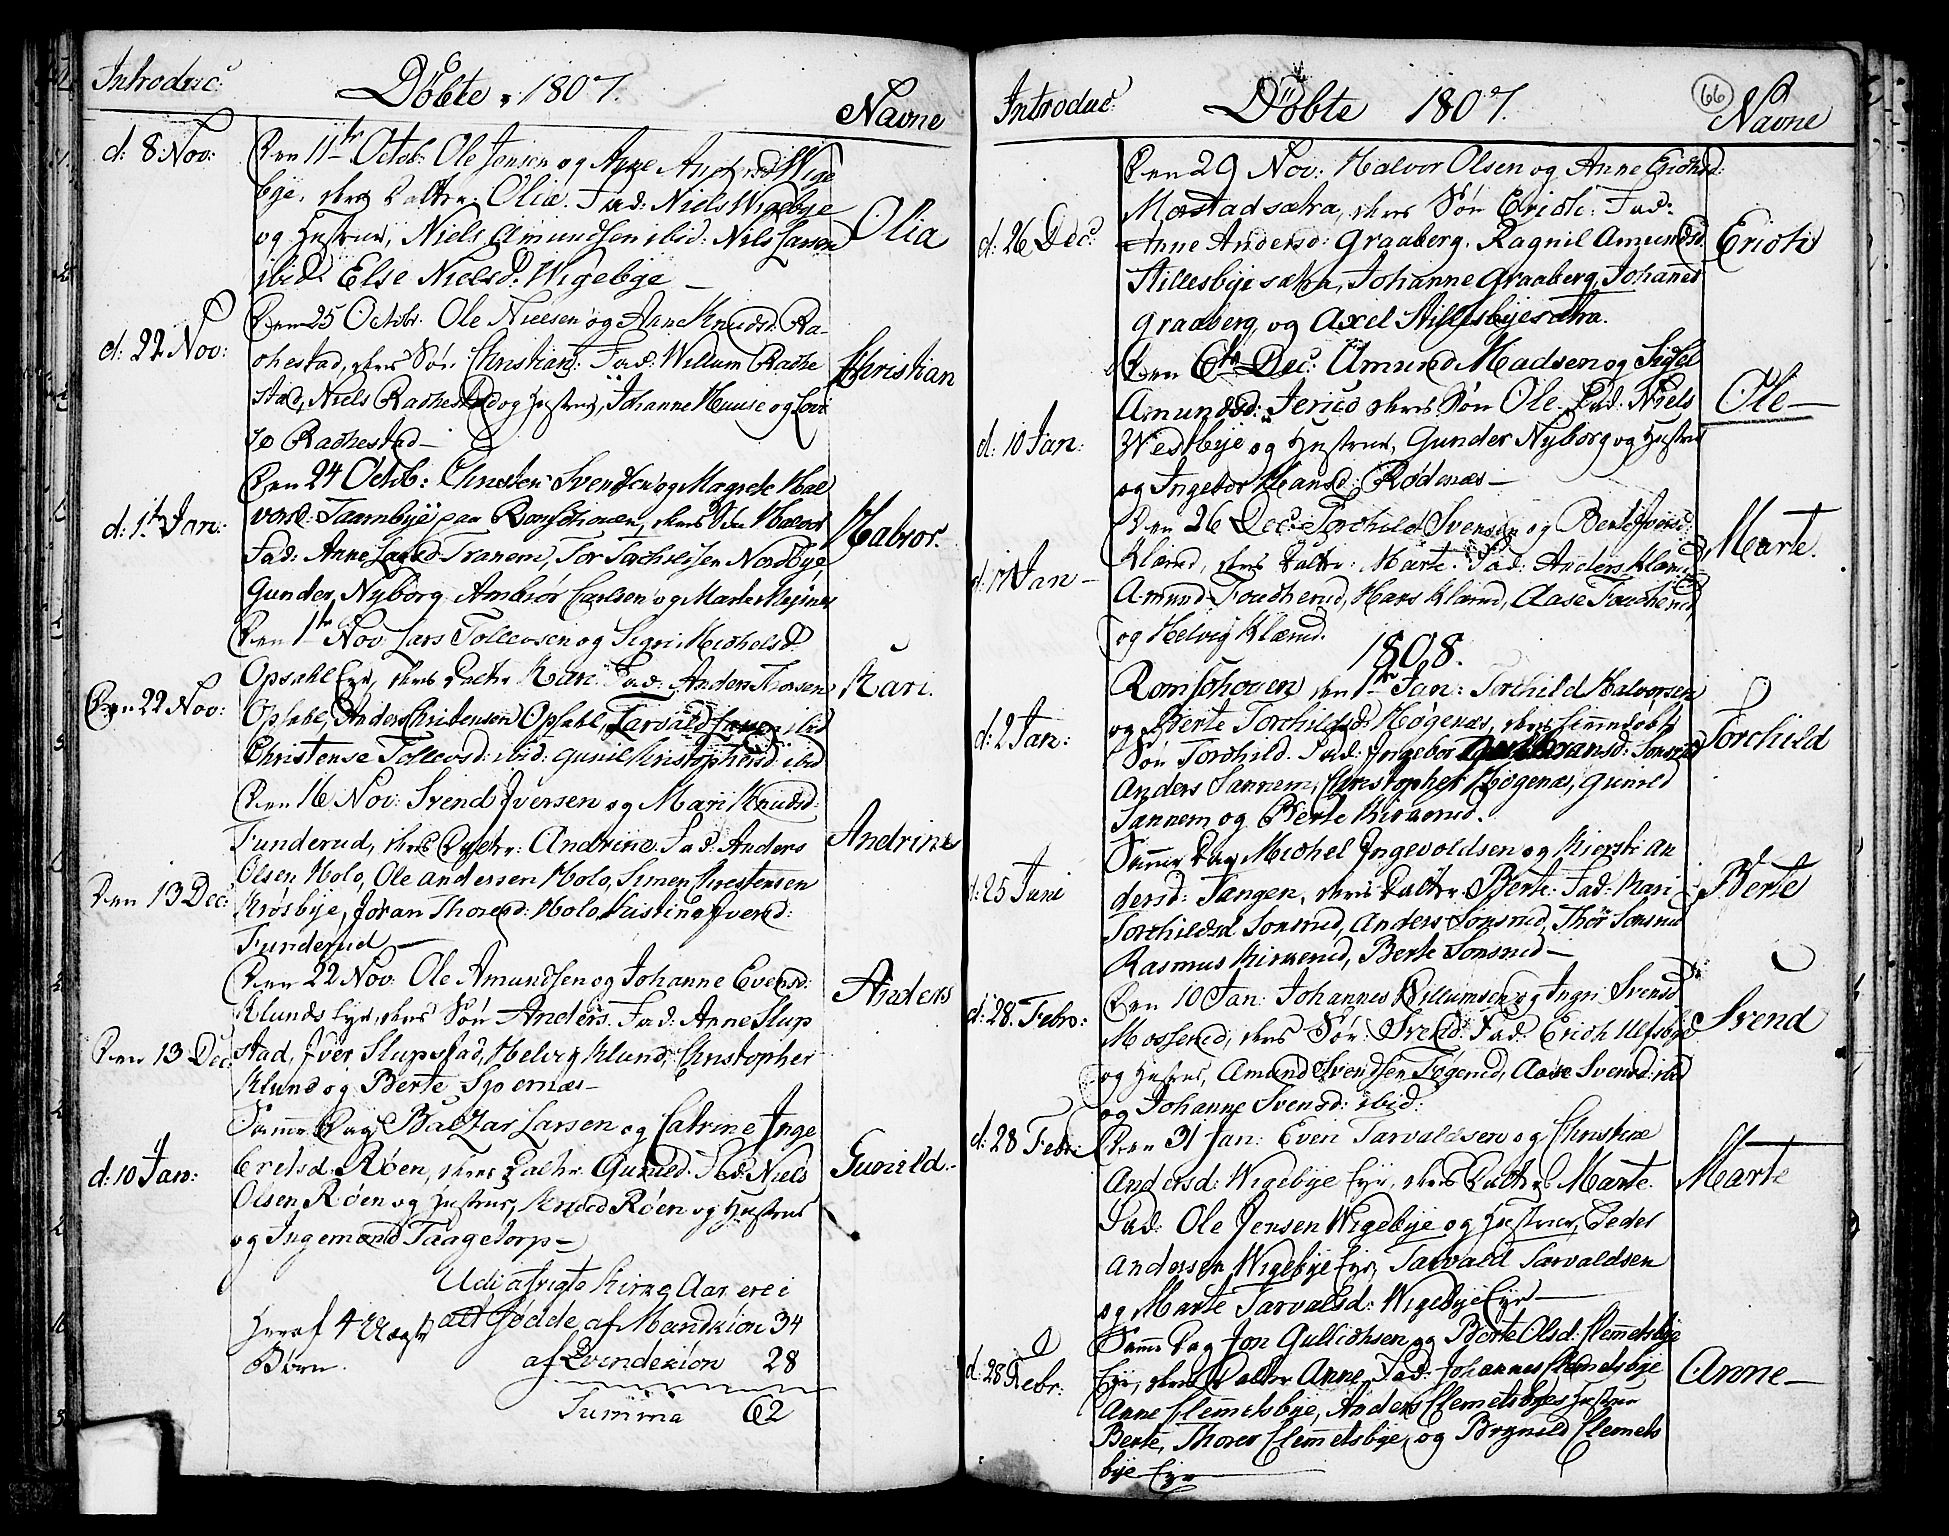 Introduc:
Döbte 1807.
Navne
d: 8 Nov:
Den 11te Octob: Ole Jensen og Anne Wige
bye, deres Datter Olia. Fad: Niels Wigebye
og Hustrue, Niels Amundsen ibid: Nils Larsen
ibid: Else Nielsd: Wigebye —
Olia
d: 22 Nov:
Den 25 Octobr: Ole Nielsen og Anne Knudsd: Ra-
kestad, deres Søn Christian: Fad: Willum Rakke
stad, Niels Rakkestad og Hustrue, Johanne Huuse og
Rakkestad —
Christian
d: 1te Jan:
Den 24 Octob: Christen Svendsen og Magrete Hal
vorsd: Taarnbye paa Romskhouen, deres Søn Halvor
Fad: Anne Tranem, Tor Torchelsen Nordbye
Gunder Nyborg Ambiør Carlsen og Marte
Halvor.
Den 22 Nov:
Den 1te Nov Lars Tollevsen og Sigri Michelsd:
Opsahl Eye, deres Datter Kari. Fad: Anders Thorsen
Opsahl, Anders Christensen Opsahl, Tarvald ibid
Christense Tollevsd: ibid: Gunil Kristophersd: ibid
Kari.
Den 13 Dec:
Den 16 Nov: Svend Iversen og Mari Knudsd:
Funderud, deres Datter: Andrine. Fad: Anders
Olsen Holo, Ole Andersen Holo, Simen Christensen
Krosbye, Jøran Thoresd: Holo, Kistine Iversd:
Funderud —
Andrine
Den 13 Dec:
Den 22 Nov: Ole Amundsen og Johanne Evensd:
Klunds Eye, deres Søn Anders. Fad: Anne Slup
stad, Iver Slupstad, Helvig Klund, Christopher
Klund og Berte —
Anders
d: 10 Jan:
Samme Dag Baltzar Larsen og Catrine Inge
bretsd: Røen, deres Datter Gunild. Fad: Niels
Olsen Røen og Hustrue, Knud Røen og Hustrue
og Ingemand Taagetorp —
Gunild. —
Udi afvigte Kirke Aar ere i
alt fødde af Mandkiön 34
af Qvindekiön 28
Summa 62
Heraf 4 Uægte
Börn.
Introduc:
Döbte 1807.
66
Navne
d: 26 Dec:
Den 29 Nov: Halvor Olsen og Anne Erichsd:
Morstadsætra, deres Søn Erich: Fad:
Anne Andersd: Graaberg, Ragnil Amundsd
Hillesbyesætra, Johanne Graaberg, Johannes
Graaberg, og Axel Hillesbyesætra.
Erich
d: 10 Jan:
Den 6te Dec: Amund Madsen og Sidsel
Amundsd: Jerico deres Søn Ole. Fad: Niels
Westbye og Hustrue, Gunder Nyborg og Hustrue
og Ingebor Hansd: Rødenæs —
Ole —
d: 17 Jan —
Den 26 Dec: Torchild Svensen og Berte Iversd:
Klærud, deres Datter: Marte. Fad: Anders Klærud
Amund Foucherud, Hans Klærud, Aase Foucherud,
og Helvig Klærud.
Marte.
1808.
d: 2 Jan:
Romskhouen den 1te Jan: Torchild Halvorsen
og Berte Torchildsd: Høgenæs, deres hiemdøbte
Søn Torchild. Fad: Ingebor
Anders Tannem, Christopher Høgenæs, Gunild
Tannem og Berte Kirkerud.
Torchild
d: 25 Juni
Samme Dag Michel Ingevoldsen og Kiersti An
dersd: Tangen, deres Datter Berte. Fad: Kari
Torchildsd Sonsrud, Anders Sonsrud, Thor Sonsrud
Rasmus Kirkerud, Berte Sonsrud —
Berte
d: 28 Febr:
Den 10 Jan: Johannes Willumsen og Ingri Svensd
Mosserud, deres Søn: Svend: Fad: Erich Ulfsbye
og Hustrue, Amund Svendsen Tøgerud, Aase Svensd: ibid
og Johanne Svensd: ibid:
Svend
d: 28 Febr:
Den 31 Jan: Even Tarvaldsen og Christine
Andersd: Wigebye Eye, deres Datter Marte.
Fad: Ole Jensen Wigebye og Hustrue, Peder
Andersen Wigebye Eye, Tarvald Tarvaldsen
og Marte Tarvalsd: Wigebye Eye —
Marte
d: 28 Febr:
Samme Dag Jon Gullichsen og Berte Olsd: Clemmetsbye
Eye, deres Datter Anne. Fad: Johannes Clemetsbye
Anne Clemetsbye, Anders Clemetsbyes Hustrue
Berte, Thorer Clemetsbye, og Brynild Clemets
bye Eye —
Anne —